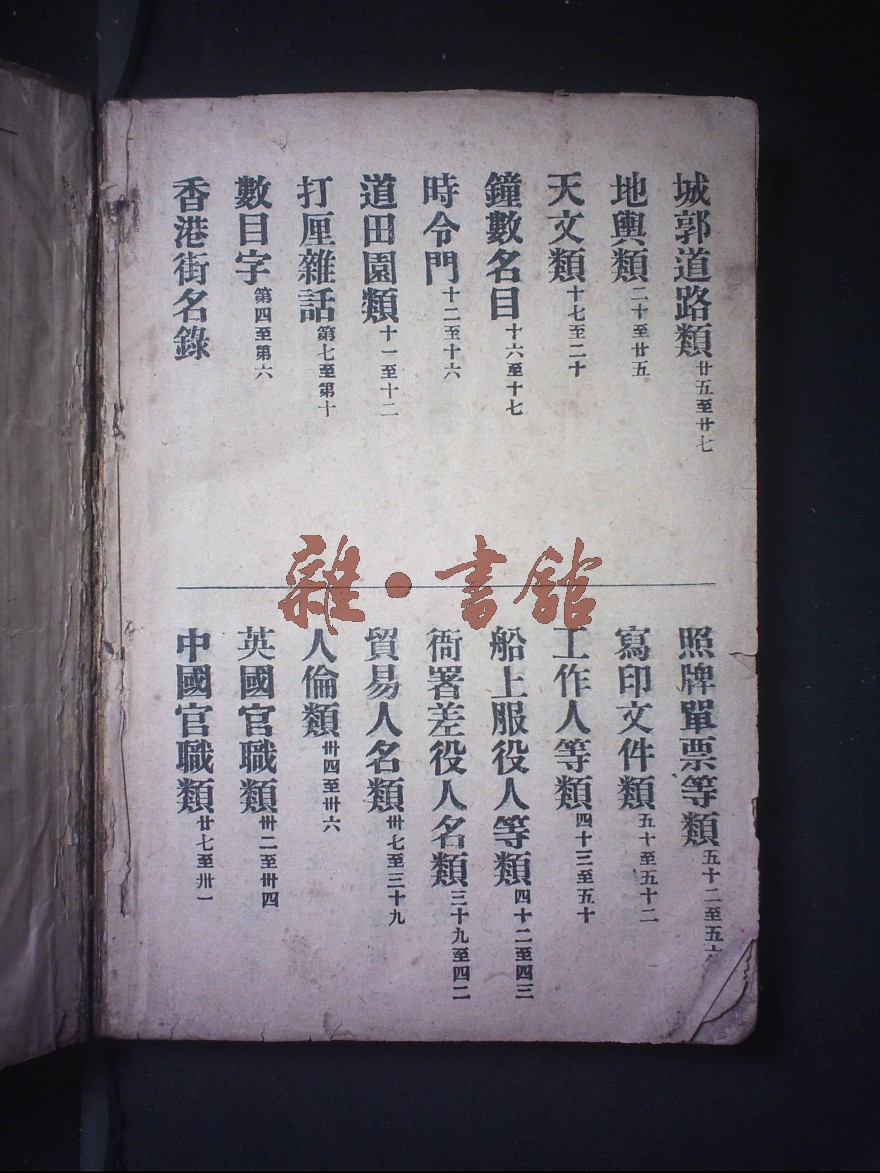 香港街名錄
數目字第四至第六
打厘雜話第七至第十
道田園類十一至十二
時令門十二至十六
鐘數名目十六至十七
天文類十七至二十
地輿類二十至廿五
城郭道路類廿五至廿七
雜·書館
中國官職類廿七至卅一
英國官職類卅二至卅四
人倫類卅四至卅六
貿易人名類卅七至三十九
衙署差役人名類三十九至四二
船上服役人等類四十二至四三
工作人等類四十三至五十
寫印文件類五十至五十二
照牌單票等類五十二至五六